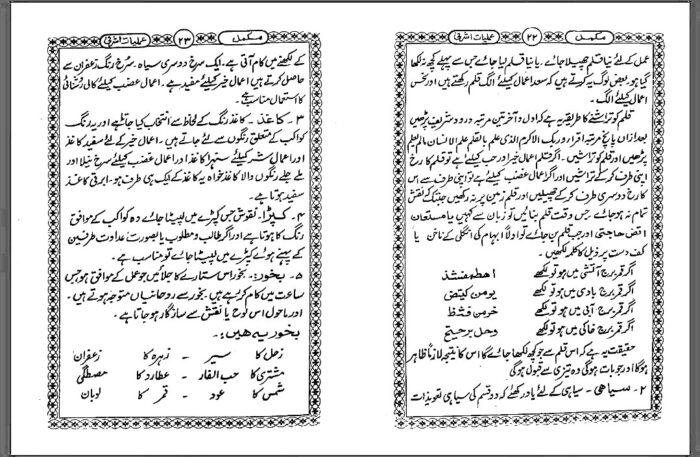 مکمل ۲۲ عملیات اشرفی
عمل کے لئے نیا قلم چھیلا جائے۔ یا نیا قلم لیا جائے جس سے پہلے کچھ نہ لکھا
گیا ہو بعض لوگ یہ کرتے ہیں کہ سعد اعمال کیلئے الگ قلم رکھتے ہیں اور نحس
اعمال کیلئے الگ۔
قلم کو تراشنے کا طریقہ یہ ہے کہ اول و آخر تین مرتبہ درود شریف پڑھیں
بعد ازاں پانچ مرتبہ اقراء وربک الاکرم الذی علم بالقلم علم الانسان مالم یعلم
پڑھیں اور قلم کو تراشیں۔ اگر قلم اعمال خیر اور حب کیلئے ہے تو قلم کا رخ
اپنی طرف کر کے تراشیں اور اگر اعمال غضب کیلئے ہے تو اپنی طرف سے اس
کا رخ دوسری طرف کر کے چھیلیں اور قلم زمین پر نہ رکھیں جبتک کہ نقش
تمام نہ ہو جائے جس وقت قلم بنائیں تو زبان سے کہیں یا مستعان
اقض حاجتی اور جب قلم بن جائے تو اولاً ابہام کی انگلی کے ناخن یا
کف دست پر ذیل کا کلمہ لکھیں۔
اگر قمر برج آتشی میں ہو تو لکھے اھطمفشذ
اگر قمر برج بادی میں ہو تو لکھے یومن کیتضی
اگر قمر برج آبی میں ہو تو لکھے
اگر قمر برج خاکی میں ہو تو لکھے
حقیقت یہ ہے کہ اس قلم سے جو کچھ لکھا جائے گا اس کا نتیجہ لازماً ظاہر
ہوگا اور جو بات ہوگی وہ تیزی سے قبول ہو گی
۲۔ سیاھی۔ سیاہی کے لئے یاد رکھئے کہ دو قسم کی سیاہی تعویذات
مکمل ۲۳ عملیات اشرفی
کے لکھنے میں کام آتی ہے۔ ایک سرخ دوسری سیاہ۔ سرخ رنگ زعفران سے
حاصل کرتے ہیں اعمال خیر کیلئے مفید ہے۔ اعمال غضب کیلئے کالی روشنائی
کا استعمال مناسب ہے۔
۳۔ کاغذ۔ کاغذ رنگ کے لحاظ سے انتخاب کیا جاتا ہے اور یہ رنگ
کواکب کے متعلق رنگوں سے لئے جاتے ہیں۔ اعمال خیر کے لئے سفید کاغذ
اور اعمال شر کیلئے سنہرا کاغذ اور اعمال غضب کیلئے سرخ نیلا اور
ملے جلے رنگوں والا کاغذ خواہ یہ کاغذ کے ایک ہی طرف ہو۔ ابری کاغذ
سفید ہوتا ہے۔
۴۔ کپڑا۔ نقوش جس کپڑے میں لپیٹا جائے وہ کواکب کے موافق
رنگ کا ہوتا ہے اور اگر طالب و مطلوب یا بصورت عداوت طرفین
کے پہنے ہوئے کپڑے میں لپیٹا جائے تو مناسب ہے۔
۵۔ بخور:۔ بخور اس ستارے کا جلائیں جو عمل کے موافق ہو جس
ساعت میں کام کر رہے ہیں۔ بخور سے روحانیاں متوجہ ہوتے ہیں۔
اور ماحول اس لوح یا نقش سے سازگار ہو جاتا ہے۔
بخور یہ ھیں:۔
زحل کا سیر - زہرہ کا زعفران
مشتری کا حب الغار - عطارد کا مصطگی
شمس کا عود - قمر کا لوبان